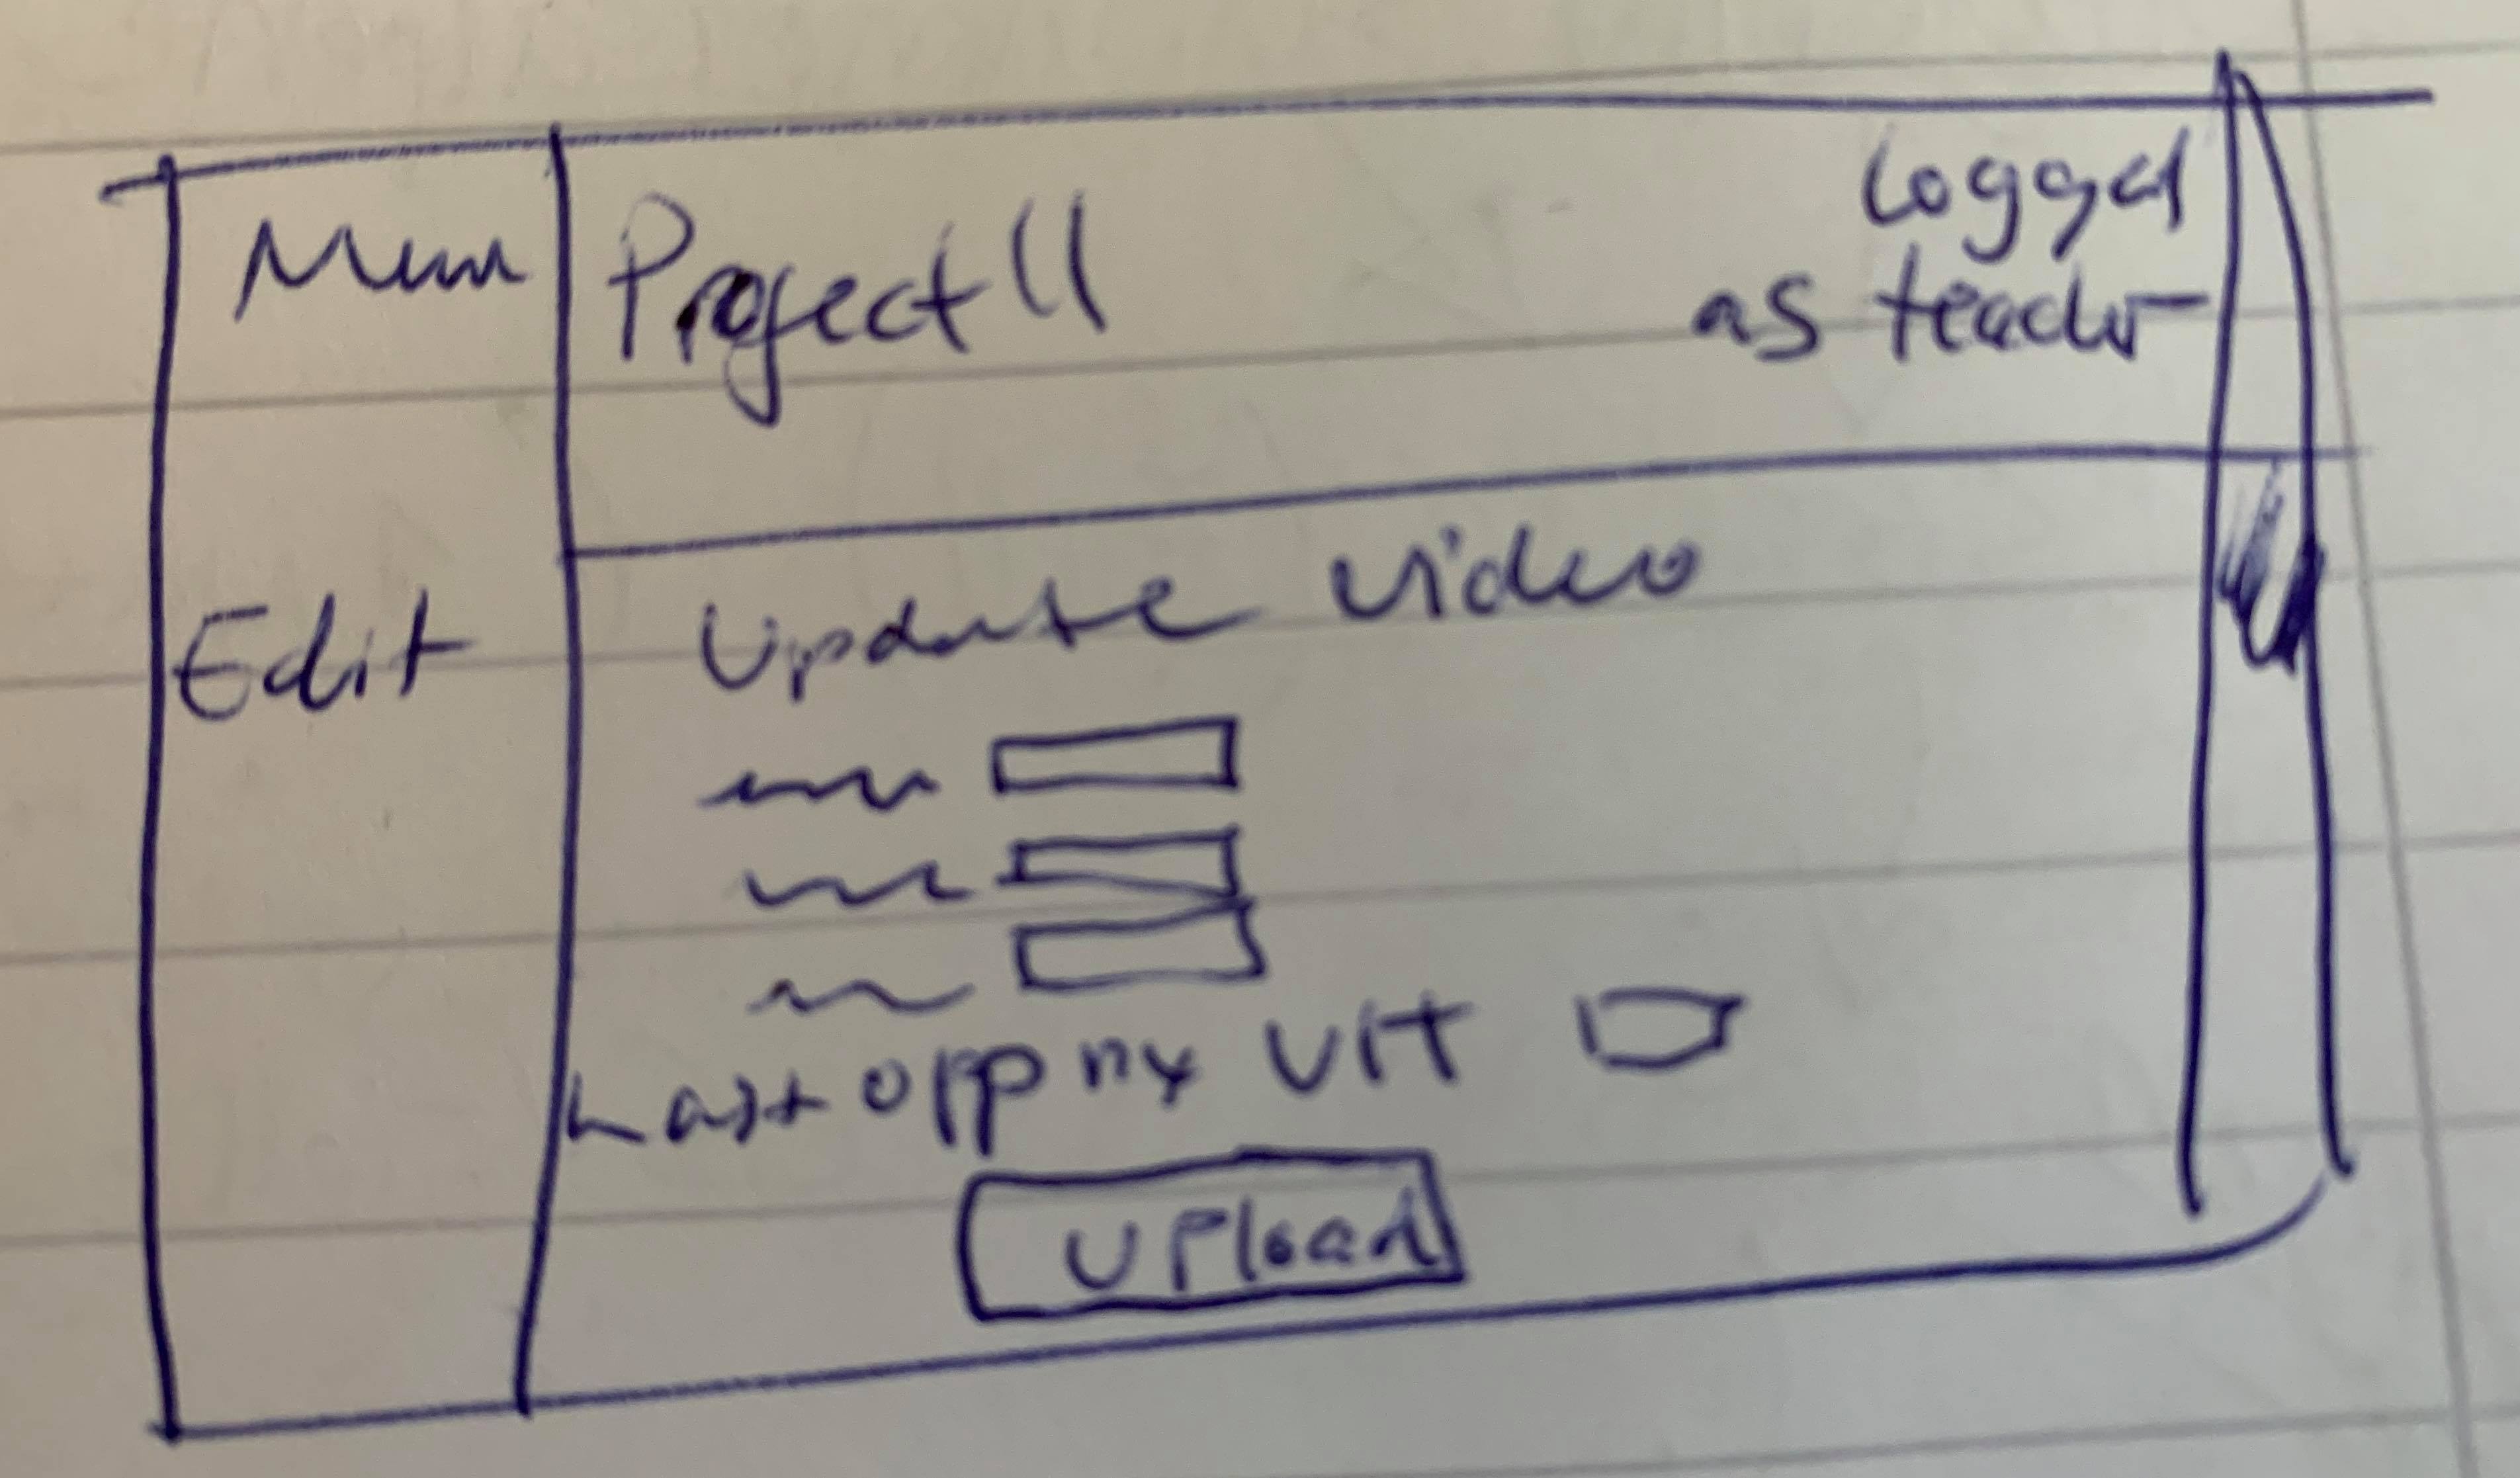 Menu
Project 11
logged
as teacher
Edit
Update video
Last opp ny
Upload